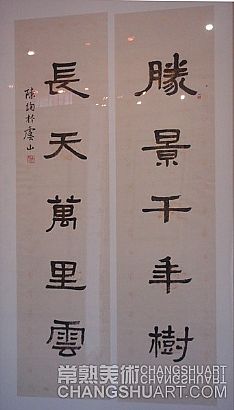 勝景千年樹
長天萬里雲
陳鞠於虞山
常熟美術CHANGSHUART
CHANGSHUART.COM